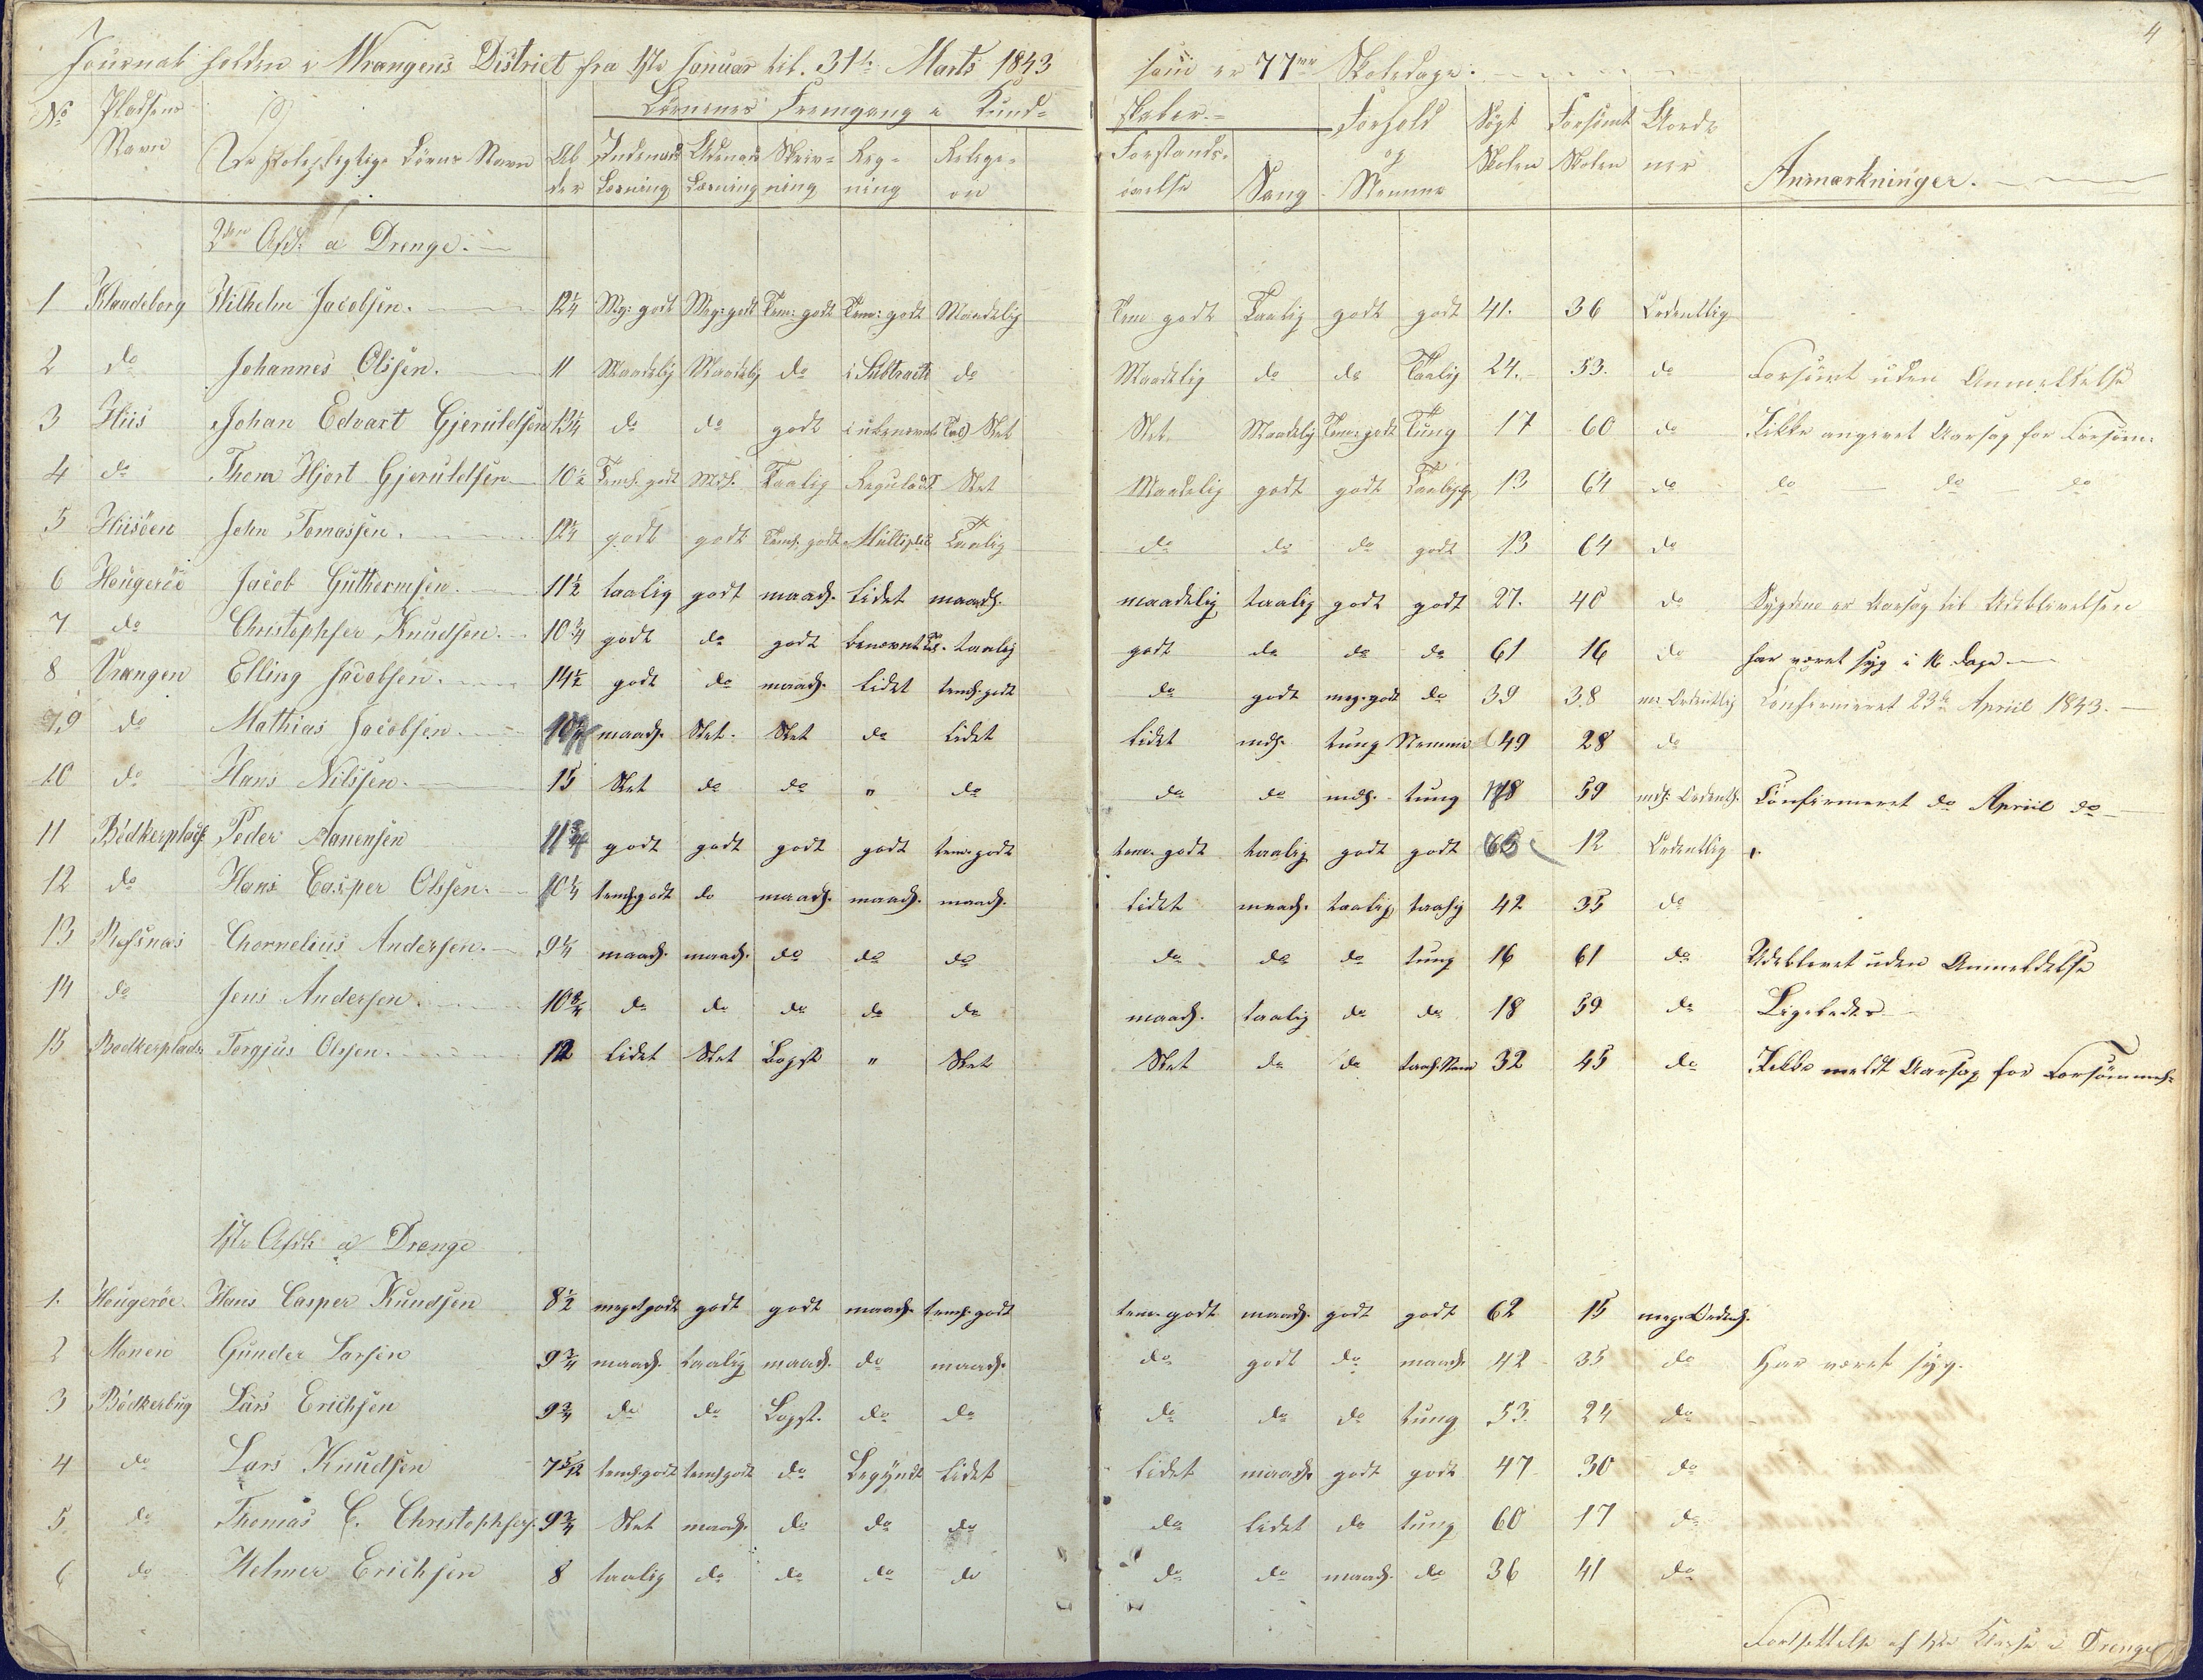 4
Journal holden i Wrangens District fra 1ste Januar til 31te Marts 1843 som er 77 Skoledage.
No Pladsens Navn De skolepligtige Börns Navn Alder Börnenes Fremgang i Kundskaber Forhold og Nemme Sögt Skolen Forsömt Skolen Anmærkninger.
Indenads Læsning Udenads Læsning Skrivning Regning Religion Forstandsövelse Sang
2den Afd: a Drenge.
1 Klaadeborg Wilhelm Jacobsen. 12¼ Meg: godt Meg: godt Tem: godt Tem: godt Maadelig Tem: godt Taalig godt godt 41. 36 Ordentlig
2 do Johannes Olssen. 11 Maadelig Maadelig do i Subtract: do Maadelig do do Taalig 24. 53. do Forsömt uden Anmeldelse
3 Hiis Johan Edvart Gjeruldsen 13¼ do do godt i ubenævnt Tal Slet Slet Maadelig Tem: godt Tung 17 60 do Ikke angivet Aarsag for Forsöm:
4 do Thom Hjort Gjeruldsen 10½ Teml. godt Mdl. Taalig Reguladt Slet Maadelig godt godt 13 64 do do do do
5 Hiisöen John Tomassen. 12¼ godt godt Teml. godt Multiplic Taalig do do do godt 13 64 do
6 Hougeröe Jacob Guthormsen. 11½ taalig godt maadl. lidet maadl. maadelig taalig godt godt 27. 40 do Sygdom er Aarsag til Udeblivelsen
7 do Christopher Knudsen. 10¾ godt do godt benævnt Tal. taalig godt do do do 61 16 do har været syg i 16 dage
8 Vrangen Elling Jacobsen. 14½ godt do maadl. lidet teml. godt do godt meg. godt do 39 38 m: Ordentlig Confirmeret 23de Apriil 1843.
9 do Mathias Jacobsen. 10 maadl. Slet. Slet do lidet lidet mdl. tung Nemme 49 28 do
10 do Hans Nilssen. 15 Slet do do " do do do mdl. tung 18 59 mdl: Ordentl. Confirmeret do Apriil do
11 Bödkerplads Peder Aanensen 11¾ godt godt godt godt tem. godt tem. godt taalig godt godt 65 12 Ordentlig
12 do Hans Casper Olssen. 10¼ teml. godt do maadl. maadl. maadl. lidet maadl. taalig taalig 42 35 do
13 Rossnæs Chornelius Andersen. 9¼ maadl. maadl. do do do do do do tung 16 61 do Udeblevet uden Anmeldelse
14 do Jens Andersen. 10¾ do do do do do maadl. taalig do do 18 59 do Ligeledes
15 Bodkerplads Torgjus Olssen. 12 lidet Slet Bogst. " Slet Slet do do taal. Nem 32 45 do Ikke meldt Aarsag for Forsömmel:
1ste Afdl: a Drenge
1. Hougeröe. Hans Casper Kundsen 8½ meget godt godt godt maadl. teml. godt tem. godt maadl. godt godt 62 15 meg. Ordentl.
2 Monen Gunder Larsen 9¾ maadl. taalig maadl. do maadl. do godt do maadl. 42 35 do Har været syg.
3 Bödkerbug Lars Erichsen 9¾ do do Bogst. do do do do do tung 53. 24 do
4 do Lars Knudsen 7 5/12 teml. godt teml. godt do Begyndt lidet lidet maadl. godt godt 47 30 do
5. do Thomas C. Christophers. 9¾ Slet maadl. do do do do lidet do tung 60 17 do
6 do Helmer Erichsen 8 taalig do do do do do do maadl. do 36 41 do
Fortsettelse af 1ste Klasse a Drenge